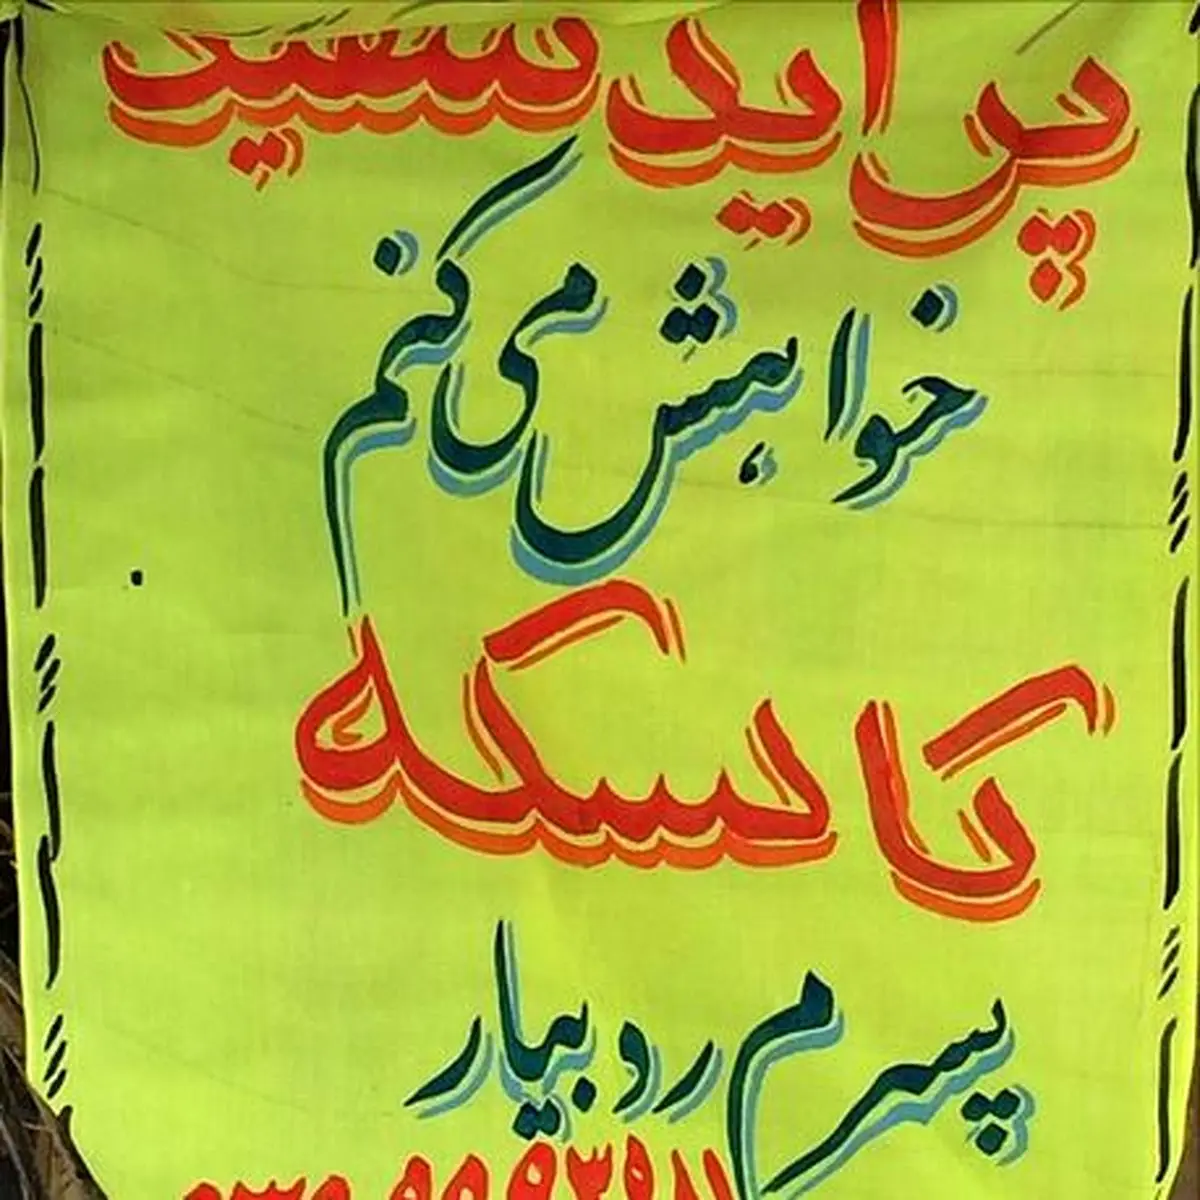 پراید سفید
خواهش می کنم
کالسکه
پسرم رو بیار